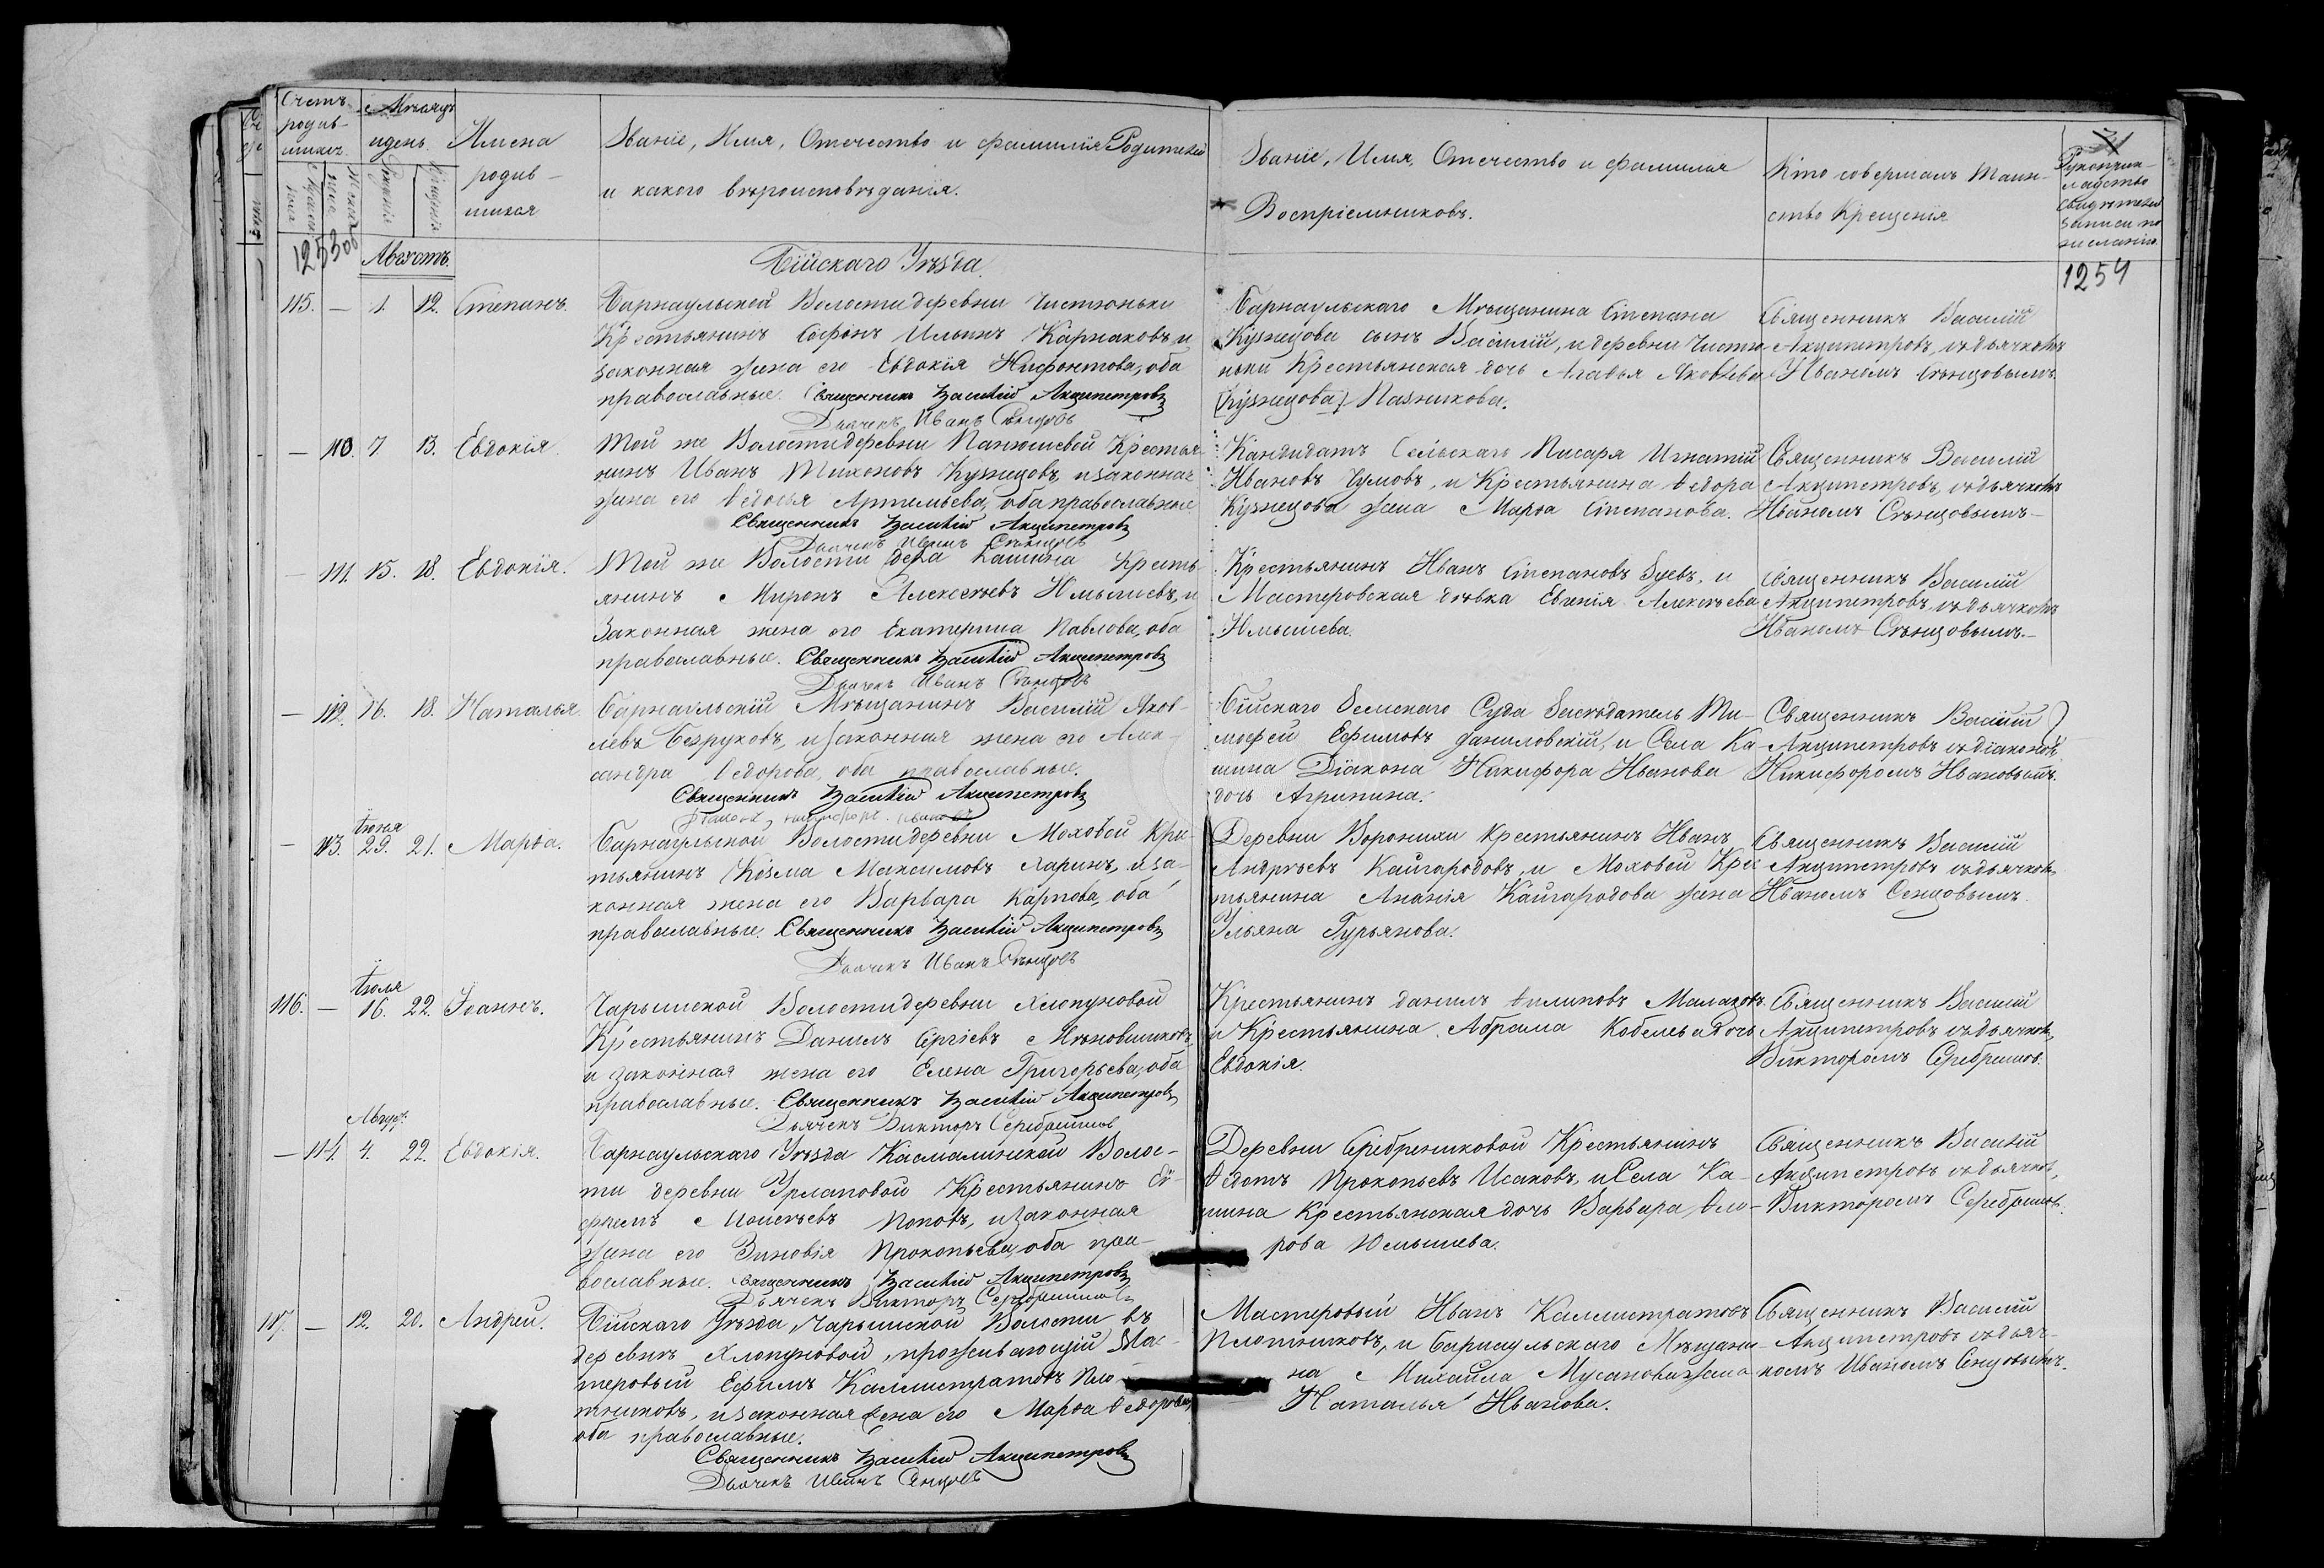 Счетъ родив-шихся
Мѣсяцъ и день
Имена родив-шихся
Званіе, Имя, Отечество и фамилія Родителей
и какого вѣроисповѣданія.
Званіе, Имя, Отечество и фамилия
Воспріемниковъ.
Кто совершалъ Таин-
ство Крещенія
31
Рукоприк-
ладство
свидѣтелей
записи по
желанію.
1253 об
Августъ.
Бійскаго Уѣзда.
1254
115. — 1. 12. Степанъ.
Барнаульской Волости деревни Чистюньки
Крестьянинъ Софонъ Ильинъ Карнаковъ, и
законная жена его Евдокія Нифонтова, оба
православные. Священникъ Василій Акципетровъ
Дьячекъ Иванъ Сѣнцовъ
Барнаульскаго Мѣщанина Степана
Кузнецова сынъ Василій, и деревни Чистю-
ньки Крестьянская дочь Агафья Яковлева
(Кузнецова) Пазникова.
Священникъ Василій
Акципетровъ, съ дьячкомъ
Иваномъ Сѣнцовымъ.
— 110. 7. 13. Евдокія.
Той же Волости деревни Панюшевой Крестья-
нинъ Иванъ Тихоновъ Кузнецовъ, и законная
жена его Ѳедосья Артемьева, оба православные
Священникъ Василій Акципетровъ
Дьячекъ Иванъ Сѣнцовъ
Кандидатъ Сельскаго Писаря Игнатій
Ивановъ Чумовъ, и Крестьянина Ѳедора
Кузнецова жена Марѳа Степанова.
Священникъ Василій
Акципетровъ, съ дьячкомъ
Иваномъ Сѣнцовымъ—
— 111. 15. 18. Евдокія.
Той же Волости Села Кашина Кресть-
янинъ Миронъ Алексѣевъ Юмышевъ, и
Законная жена его Екатерина Павлова, оба
православные. Священникъ Василій Акципетровъ
Дьячекъ Иванъ Сѣнцовъ
Крестьянинъ Иванъ Степановъ Зуевъ, и
Мастеровская дѣвка Евгенія Алексѣева
Юмышева.
Священникъ Василій
Акципетровъ, съ дьячкомъ
Иваномъ Сѣнцовымъ.—
— 112. 16. 18. Наталья.
Барнаульскій Мѣщанинъ Василій Яков-
левъ Безруковъ, и законная жена его Алек-
сандра Ѳедорова, оба православные.
Священникъ Василій Акципетровъ
Діаконъ Никифоръ Ивановъ
Бійскаго Земскаго Суда Засѣдатель Ти-
мофей Ефимовъ Даниловскій, и Села Ка-
шина Діакона Никифора Иванова
дочь Агрипина.
Священникъ Василій
Акципетровъ съ діакономъ
Никифоромъ Ивановымъ.
Іюля
— 113. 29. 21. Марѳа.
Барнаульской Волости деревни Моховой Крес-
тьянинъ Козма Максимовъ Ларинъ, и за-
конная жена его Варвара Карпова, оба
православные. Священникъ Василій Акципетровъ
Дьячекъ Иванъ Сѣнцовъ
Деревни Воронихи Крестьянинъ Иванъ
Андрѣевъ Кайгородовъ, и Моховой Крес-
тьянина Ананія Кайгородова жена
Ульяна Гурьянова.
Священникъ Василій
Акципетровъ съ дьячком
Иваномъ Сенцовымъ.
Іюля
116. — 16. 22. Іоаннъ.
Чарышской Волости деревни Хлопуновой
Крестьянинъ Данилъ Сергіевъ Мѣновщиковъ,
и законная жена его Елена Григорьева, оба
православные. Священникъ Василій Акципетровъ
Дьячекъ Викторъ Серебрянниковъ
Крестьянинъ Данилъ Филиповъ Малаховъ
и Крестьянина Абрама Кобелева дочь
Евдокія.
Священникъ Василій
Акципетровъ съ дьячком
Викторомъ Серебрянник.
Авгус.
— 114. 4. 22. Евдокія.
Барнаульскаго Уѣзда Касмалинской Волос-
ти деревни Урлаповой Крестьянинъ Еѳ-
фремъ Моисѣевъ Поповъ, и законная
жена его Зиновія Прокопьева, оба пра-
вославные. Священникъ Василій Акципетровъ
Дьячекъ Викторъ Серебрянниковъ
Деревни Серебрениковой Крестьянинъ
Ѳедотъ Прокопьевъ Исаковъ, и Села Ка-
шина Крестьянская дочь Варвара Фло-
рова Юмышева.
Священникъ Василій
Акципетровъ съ дьячком
Викторомъ Серебрянник.
117. — 12. 20. Андрей.
Бійскаго Уѣзда, Чарышской Волости въ
деревнѣ Хлопуновой, проживающій Мас-
теровый Ефимъ Каллистратовъ Пло-
тниковъ, и законная жена его Марѳа Ѳедорова,
оба православные.
Священникъ Василій Акципетровъ
Дьячекъ Иванъ Сенцовъ
Мастеровый Иванъ Каллистратовъ
Плотниковъ, и Барнаульскаго Мѣщани-
на Михаила Мусанова жена
Наталья Иванова.
Священникъ Василій
Акципетровъ съ дьяч-
комъ Иваномъ Сенцовымъ.